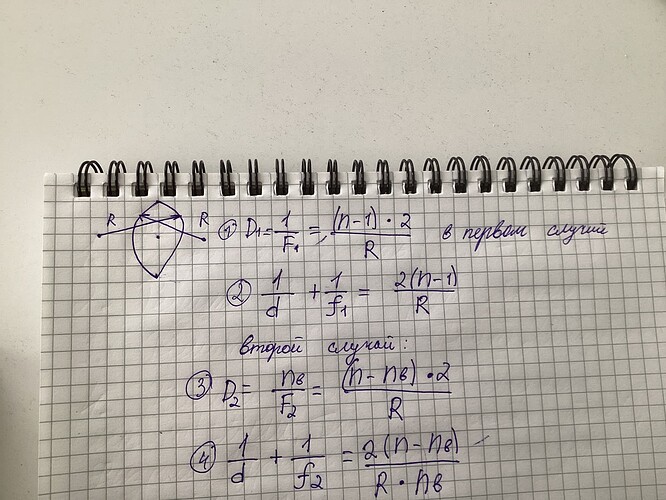 R R ① D₁ = 1/F₁ = (n-1)·2/R в первом случий
② 1/d + 1/f₁ = 2(n-1)/R
второй случай:
③ D₂ = nв/F₂ = (n-nв)·2/R
④ 1/d + 1/f₂ = 2(n-nв)/R·nв